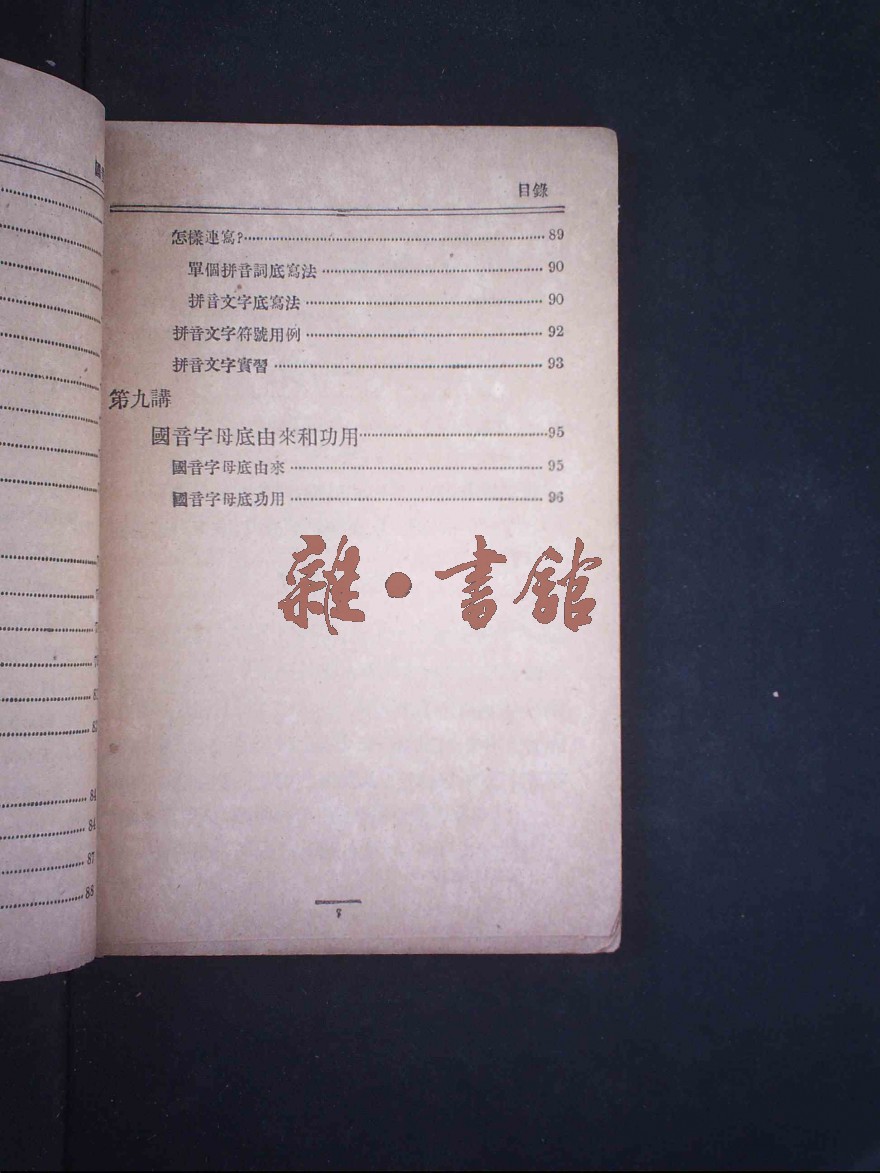 目錄
怎樣連寫?⋯⋯⋯⋯89
單個拼音詞底寫法⋯⋯⋯⋯90
拼音文字底寫法⋯⋯⋯⋯90
拼音文字符號用例⋯⋯⋯⋯92
拼音文字實習⋯⋯⋯⋯93
第九講
國音字母底由來和功用⋯⋯⋯⋯95
國音字母底由來⋯⋯⋯⋯95
國音字母底功用⋯⋯⋯⋯96
雜·書館
84
84
87
88